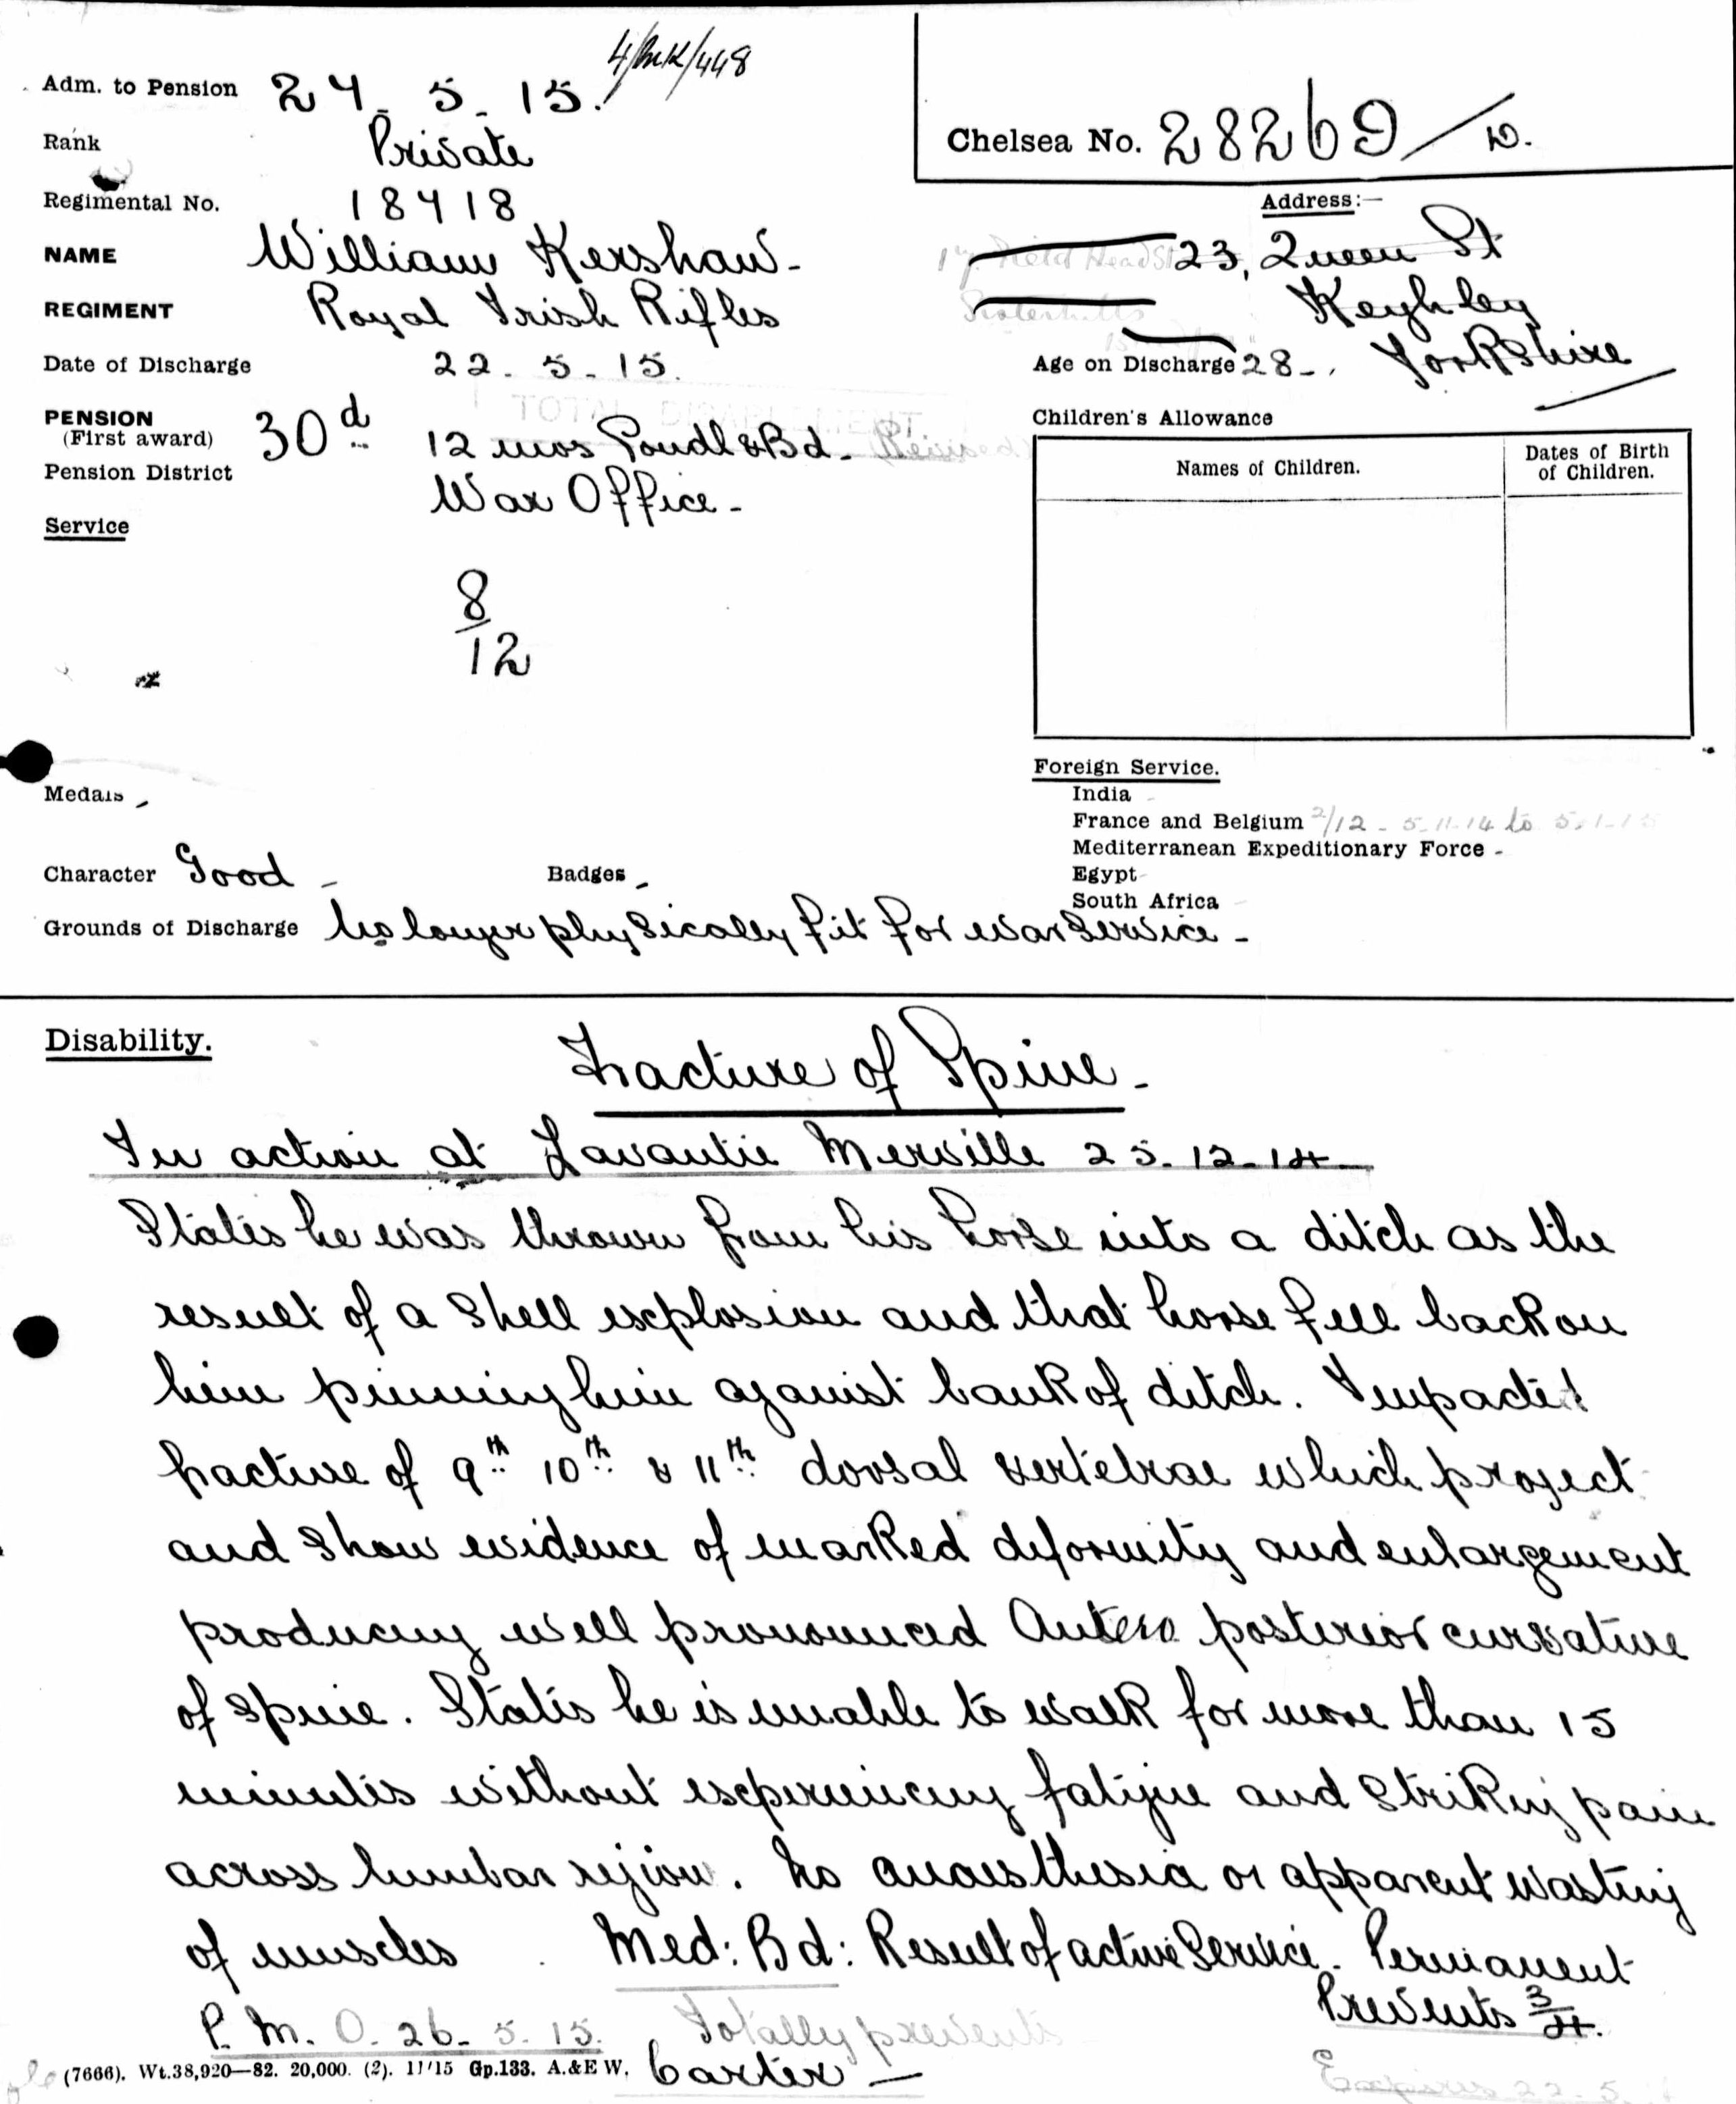 4/MK/448
Adm. to Pension 24. 5. 15.
Chelsea No. 28269/D.
Rank Private
Regimental No. 18418
Address:—
NAME William Kershaw-
17 Field Head St 23, Queen St
REGIMENT Royal Irish Rifles
Keighley
Date of Discharge 22. 5. 15.
Age on Discharge 28-. Yorkshire
TOTAL DISABLEMENT
PENSION
(First award) 30d 12 mos Condl & Bd. Revised
Children's Allowance
Pension District War Office-
Names of Children.
Dates of Birth
of Children.
Service
8/12
Foreign Service.
Medals -
India -
France and Belgium 2/12 - 5-11-14 to 5.1.15
Mediterranean Expeditionary Force -
Character Good - Badges -
Egypt -
South Africa -
Grounds of Discharge No longer physically fit for war service -
Disability.
Fracture of Spine -
In action at Lavantie Merville 25. 12-14
States he was thrown from his horse into a ditch as the
result of a shell explosion and that horse fell back on
him pinning him against bank of ditch. Impacted
fracture of 9th 10th & 11th dorsal vertebrae which project
and show evidence of marked deformity and enlargement
producing well pronounced Antero posterior curvature
of spine. States he is unable to walk for more than 15
minutes without experiencing fatigue and striking pain
across lumbar region. No anaesthesia or apparent wasting
of muscles. Med: Bd: Result of active Service. Permanent
Prevents 3/4.
P. M. O. 26. 5. 15. Totally prevents
Carter —
(7666). Wt.38,920—82. 20,000. (2). 11/15 Gp.133. A.&E W.
Expires 22. 5.